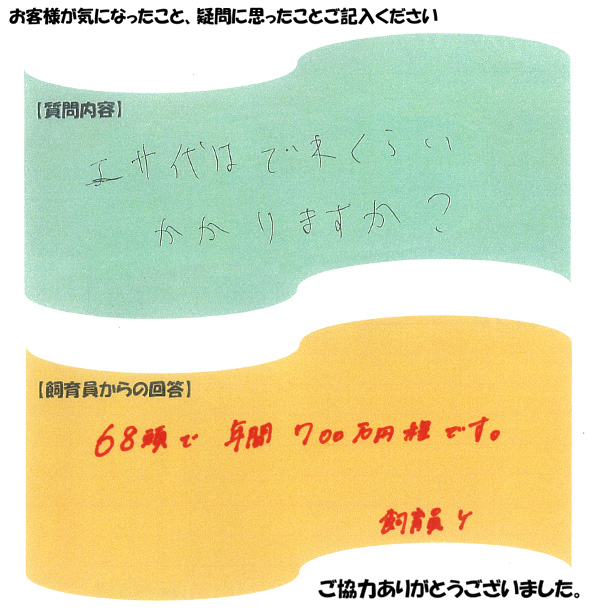 お客様が気になったこと、疑問に思ったことご記入ください
【質問内容】
エサ代はで来くらい
かかりますか？
【飼育員からの回答】
68頭で 年間 700万円程です。
飼育員 Y
ご協力ありがとうございました。